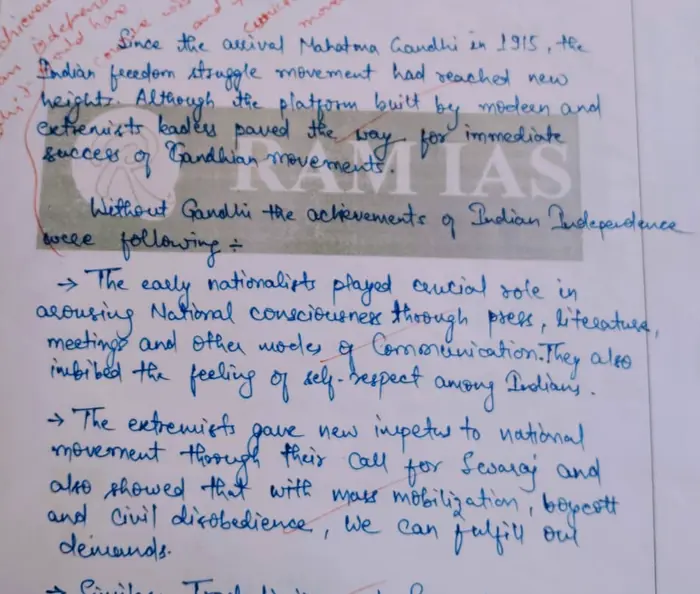 Since the arrival Mahatma Gandhi in 1915, the
Indian freedom struggle movement had reached new
heights. Although the platform built by modern and
extremists leaders paved the way for immediate
success of Gandhian movements.
RAM IAS
Without Gandhi the achievements of Indian Independence
were following ÷
→ The early nationalists played crucial role in
arousing National consciousness through press, literature,
meetings and other modes of Communication. They also
imbibed the feeling of self-respect among Indians.
→ The extremists gave new impetus to national
movement through their call for Swaraj and
also showed that with mass mobilization, boycott
and civil disobedience, we can fulfill our
demands.